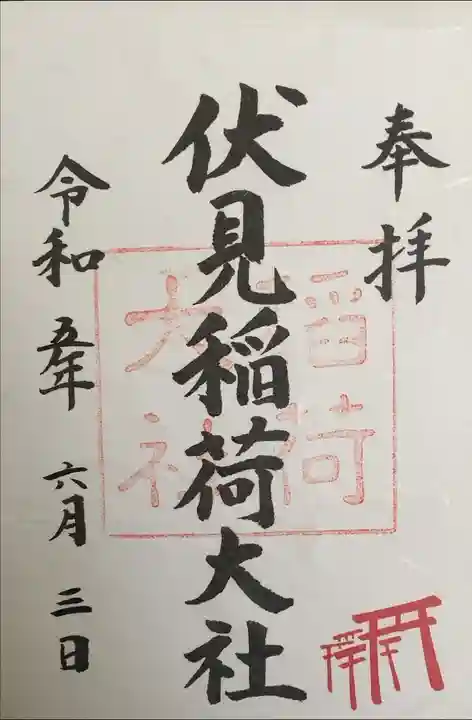 奉拝
伏見稲荷大社
稲荷
大社
令和五年六月三日